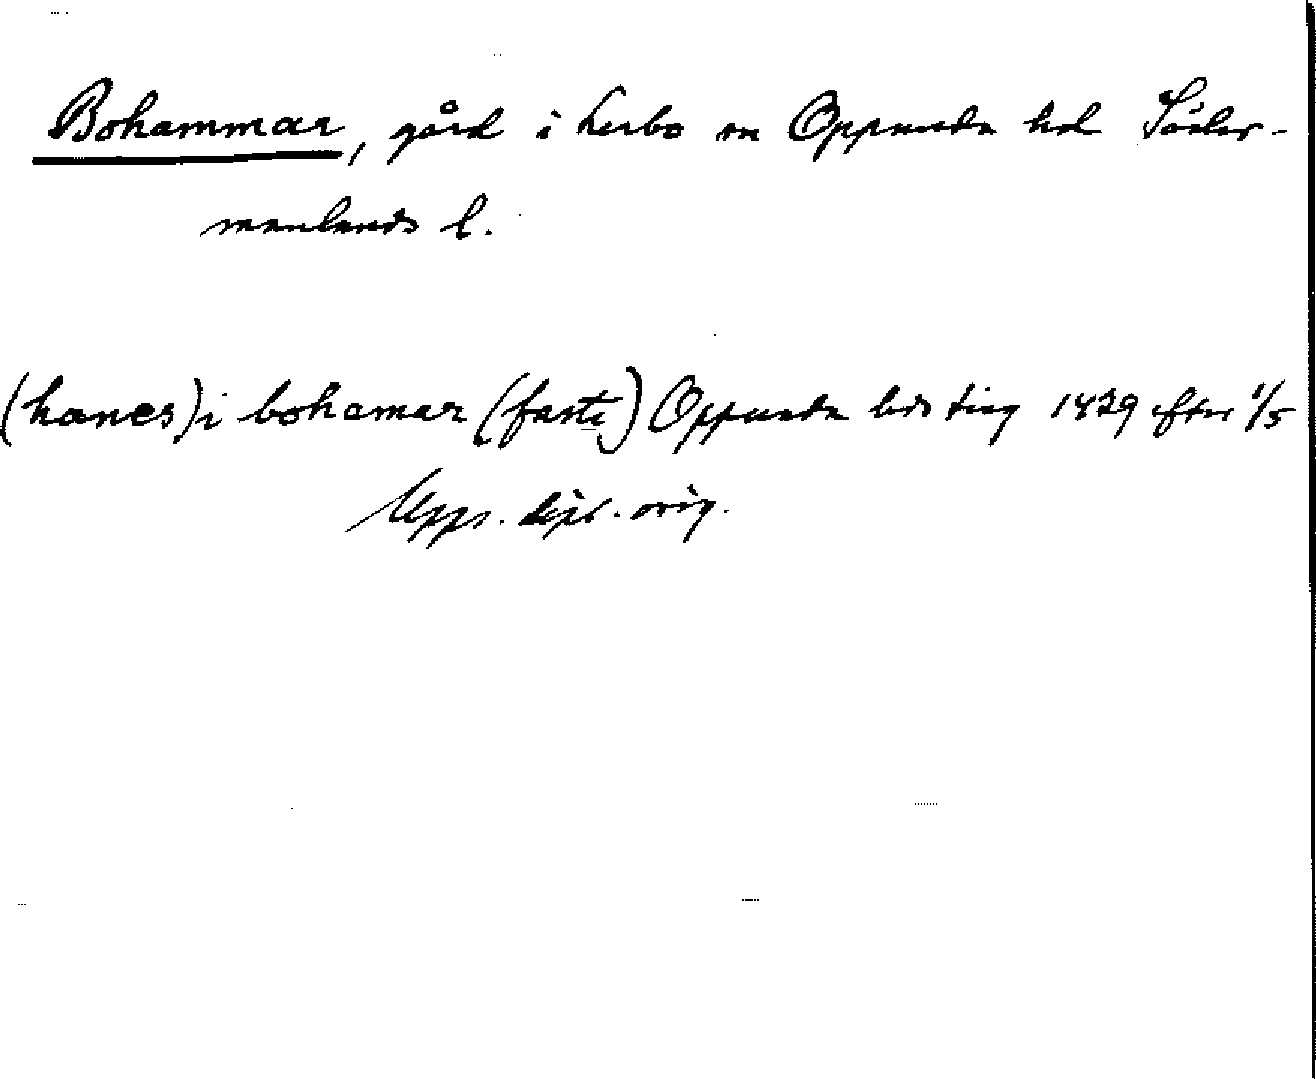 Bohammar, gård i Lerbo sn Oppunda hd Söder-
manlands l.
(hanes) i bohamar (faste) Oppunda hds ting 1439 efter 1/5
Upps. dipl. orig.